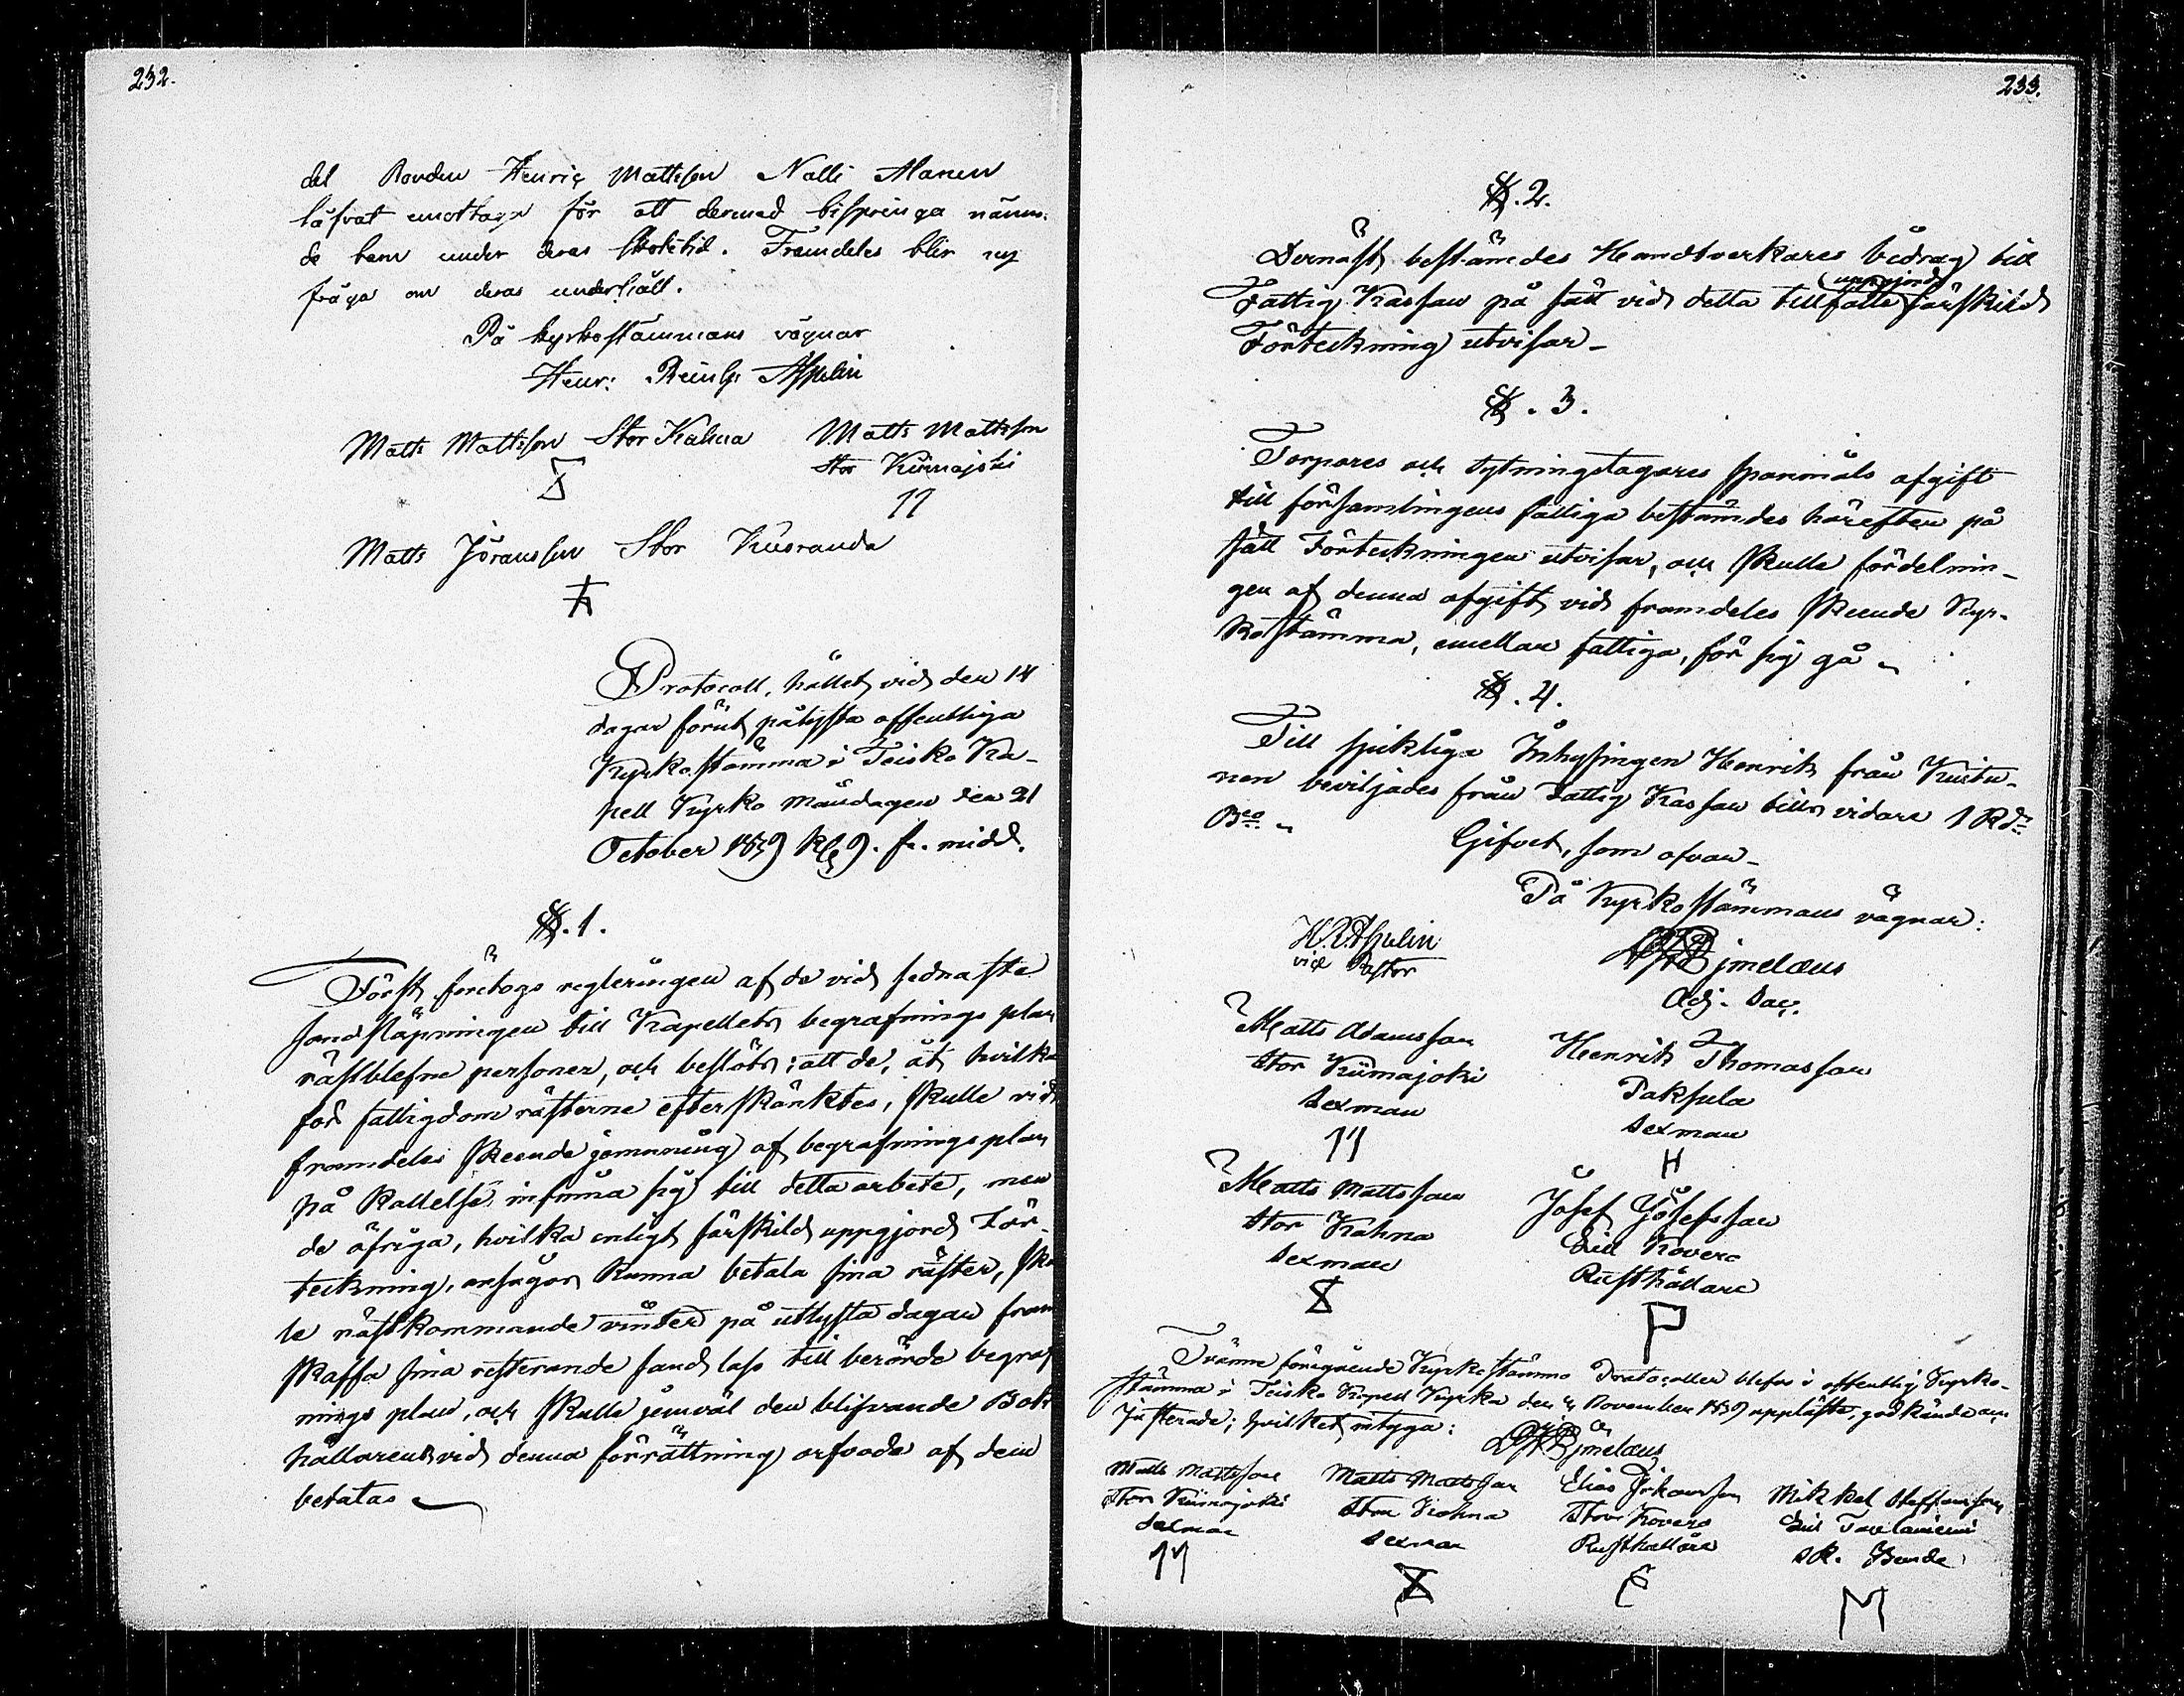 232.
del Bonden Henric Mattsson Nalli Alanen
låfvat emottaga för att dermed bispringa nämn-
de barn under deras skoletid. Framdeles blir ny
fråga om deras underhåll.
På kyrkostämmans vägnar
Henr: Reinh: Aspelin
Matts Mattsson Stor Kahna
Matts Mattsson
Stor Kiimajoki
Matts Jöransson Stor
Protocoll, hållet vid den 14
dagar förut pålysta offentliga
Kyrkostämma i Teisko Ka-
pell Kyrka Måndagen den 21
October 1839 Kl. 9. f. midd.
§. 1.
Först företogs regleringen af de vid sednaste
sandsläpningen till Kapellets begrafnings plan
råstblefne personer, och beslöts; att de, åt hvilka
för fattigdom råsterne efterskänktes, skulle vid
framdeles skeende jemnning af begrafnings plan
på kallelse infinna sig till detta arbete, men
de öfriga, hvilka enligt särskild uppgjord För-
teckning, ansågos kunna betala sina råster, sku
le nästkommande vinter på utlysta dagar fram
skaffa sina resterande sand lass till berörde begraf
nings plan, och skulle jemväl den blifvande Bok
hållarens vid denna förrättning arfvode af dem
betalas
233.
§. 2.
Dernäst bestämdes Handtverkares bidrag till
uppgjord
Fattig Kassan på sätt vid detta tillfälle särskild
Förteckning utvisar_
§. 3.
Torpares och sytningstagares spanmåls afgift
till församlingens fattiga bestämdes härefter på
sätt Förteckningen utvisar, och skulle fördelnin-
gen af denna afgift vid framdeles skeende Kyr-
kostämma, emellan fattiga, för sig gå
§. 4.
Till sjukliga Inhysingen Henrik från
beviljades från Fattig Kassan tills vidare 1 Rd:
Bco
Gifvet, som ofvan_
På Kyrkostämmans vägnar:
H. R. Aspelin
vice Pastor
Adj. Sac.
Matts Adamsson
Stor Kiimajoki
Sexman
Henrik Thomasson
Paksula
Sexman
H
Matts Mattsson
Stor Kahna
Sexman
Josef Josefsson
Lill Kovero
Rusthållare
P
Tvänne föregående Kyrkostämmo Protocoller blefvo i offentlig Kyrko-
stämma i Teisko Kapell Kyrka den November 1839 uppläste, godkände och
Justerade; hvilket intyga:
Matts Mattsson
Stor Kiimajoki
Sexman
Matts Mattsson
Stor Kahna
Sexman
Elias
Stor Kovero
Rusthållare
E
Mikkel Staffansson
Lill
Sk. Bonde
M